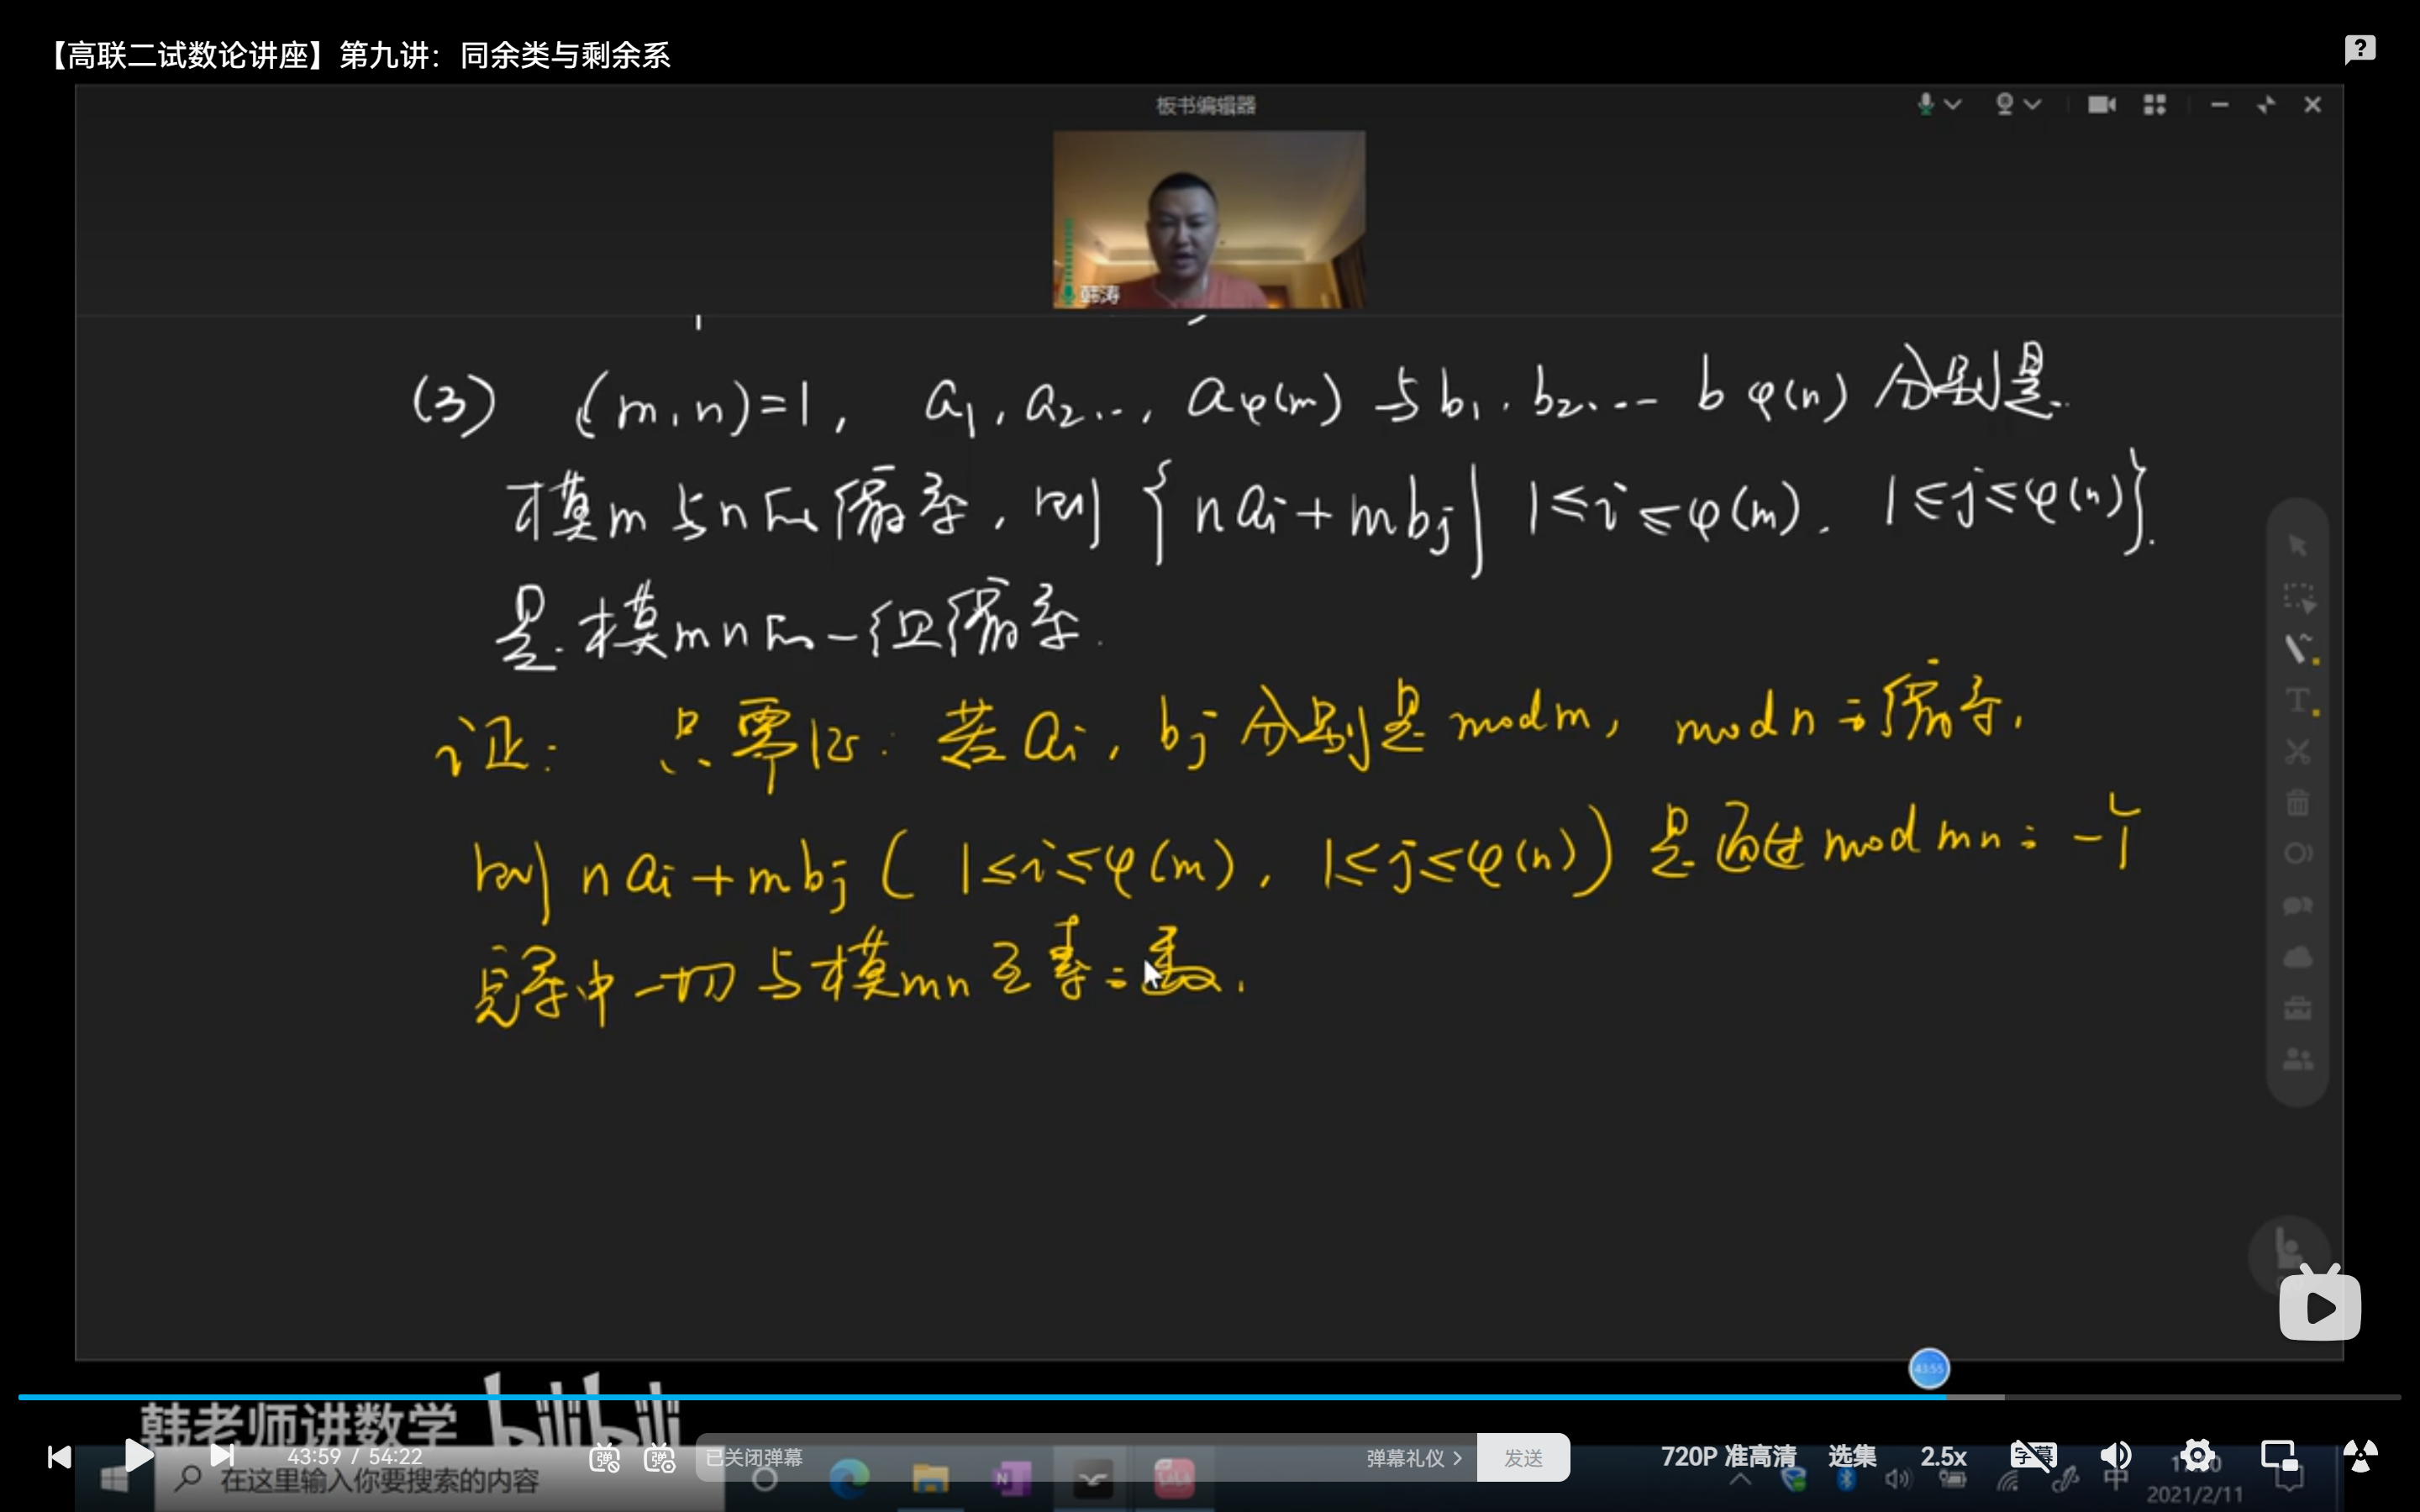 【高联二试数论讲座】第九讲：同余类与剩余系
板书编辑器
韩涛
(3) (m,n)=1, a₁,a₂..,aφ(m) 与b₁,b₂,...bφ(n)分别是
模m与n的缩系,则{nai+mbj|1≤i≤φ(m).1≤j≤φ(n)}.
是模mn的一组缩系.
证: 只需证:若ai,bj分别是modm, modn之缩系,
则nai+mbj(1≤i≤φ(m),1≤j≤φ(n))是通过modmn之一个
完系中一切与模mn互素之数.
43:55
韩老师讲数学 bilibili
43:59 / 54:22
已关闭弹幕
弹幕礼仪 >
发送
720P 准高清
选集
2.5x
字幕
在这里输入你要搜索的内容
中
2021/2/11